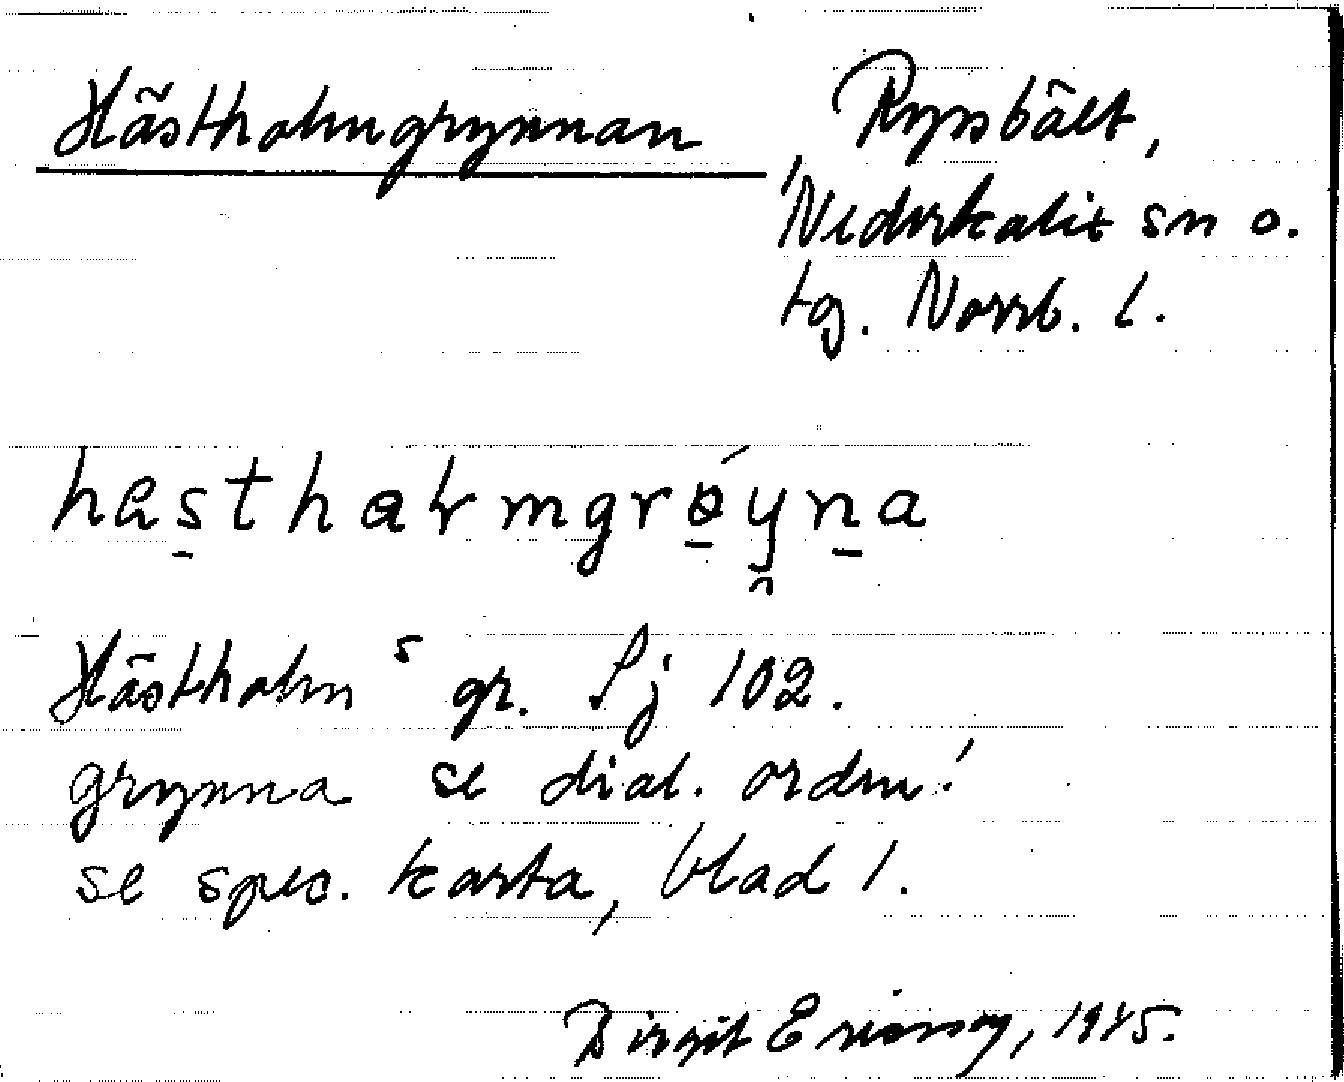 Hästholmgrynnan
Rynsbält,
Nederkalix sn o.
tg. Norrb. l.
hästhalmgrøyna
Hästholms gr. Sj 102.
grynna se dial. orden!
se spec. karta, blad 1.
Birgit 1945.